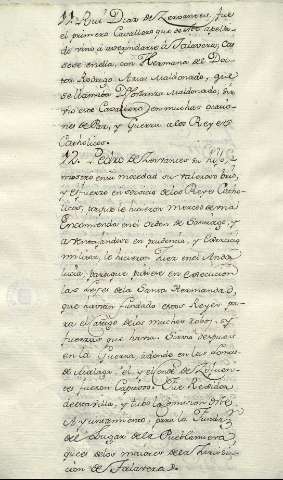 11. Rui Diaz de Zervantes, fue
el primero Cavallero que de este apelli-
do vino a avezindarse à Talavera, Ca-
sose en ella, con Hermana del Doc-
tor Rodrigo Arias Maldonado, que
se llamava Dª Maldonado, Sir-
vio este Cavallero en muchas ocasio-
nes de Paz, y Guerra a los Reyes
Catholicos.
12. Pedro de Zervantes su hijo,
mostro en su mocedad su valeroso brio,
y esfuerzo en servicio de los Reyes Catho-
licos, y que le hicieron merced de una
Encomienda en el Orden de Santiago, y
aventajandose en prudencia, y exercicio
militar, le hicieron Juez en el Anda
lucia, para que pusiese en execucion
las leyes de la Santa Hermandad,
que havian fundado estos Reyes pa-
ra el castigo de los muchos robos, y
fuerzas que havia. Sirvio despues
en la Guerra, adonde en la
de Malaga, el y el Conde de Cifuen-
tes fueron Captivos. Fue
de esta Villa, y tubo la comision
Ayuntamiento, para la Fundaz.n
del Lugar de la Pueblanueva,
que es de los maiores de la Jurisdi-
cion de Talavera.